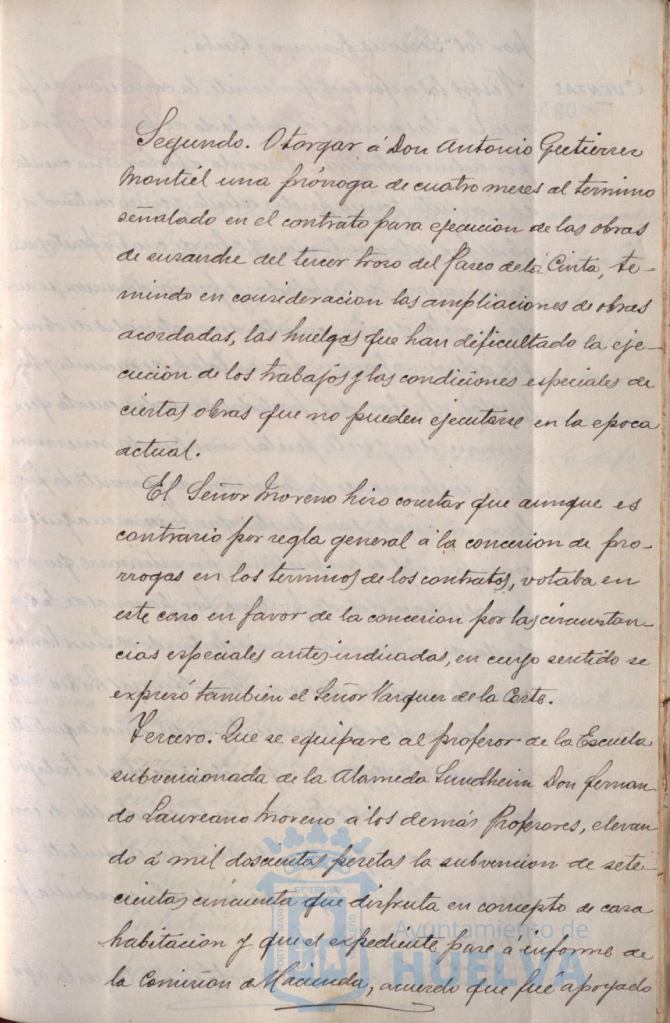 Segundo. Otorgar á Don Antonio Gutierrez
Montiel una prórroga de cuatro meses al termino
señalado en el contrato para ejecucion de las obras
de ensanche del tercer trozo del Paseo de la Cinta, te-
niendo en consideracion las ampliaciones de obras
acordadas, las huelgas que han dificultado la eje-
cución de los trabajos y las condiciones especiales de
ciertas obras que no pueden ejecutarse en la epoca
actual.
El Señor Moreno hizo constar que aunque es
contrario por regla general á la concesion de pro-
rrogas en los terminos de los contratos, votaba en
este caso en favor de la concesion por las circunstan-
cias especiales antes indicadas, en cuyo sentido se
expresó tambien el Señor Vazquez de la Corte.
Tercero. Que se equipare al profesor de la Escuela
subvencionada de la Alameda Sundheim Don Fernan-
do Laureano Moreno á los demás Profesores, elevan-
do á mil doscientas pesetas la subvencion de sete-
cientas cincuenta que disfruta en concepto de casa
habitacion y que el expediente pase á informe de
la Comisión de Hacienda, acuerdo que fué apoyado
Ayuntamiento de
HUELVA